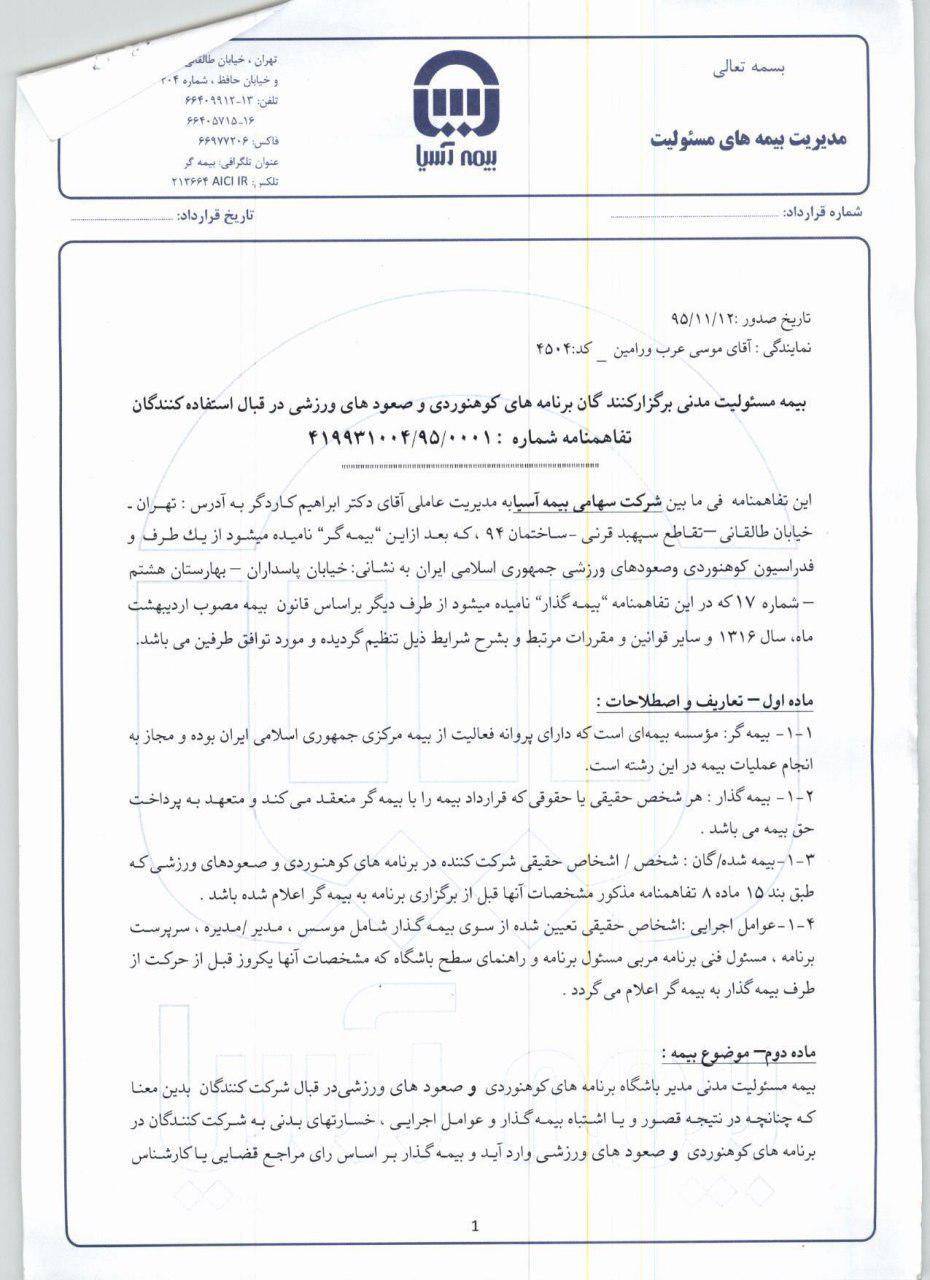 بسمه تعالی
مدیریت بیمه های مسئولیت
بیمه آسیا
تهران ، خیابان طالقانی
و خیابان حافظ ، شماره ۳۰۴
تلفن: ۱۳-۶۶۴۰۹۹۱۲
۶۶۴۰۵۷۱۵-۱۶
فاکس: ۶۶۹۷۷۲۰۶
عنوان تلگرافی: بیمه گر
تلکس: ۲۱۳۶۶۴ AICI IR
شماره قرارداد:
تاریخ قرارداد:
تاریخ صدور :۹۵/۱۱/۱۲
نمایندگی : آقای موسی عرب ورامین _ کد:۴۵۰۴
بیمه مسئولیت مدنی برگزارکنند گان برنامه های کوهنوردی و صعود های ورزشی در قبال استفاده کنندگان
تفاهمنامه شماره : ۴۱۹۹۳۱۰۰۴/۹۵/۰۰۰۱
این تفاهمنامه فی ما بین شرکت سهامی بیمه آسیابه مدیریت عاملی آقای دکتر ابراهیم کاردگر به آدرس : تهران ـ
خیابان طالقانی –تقاطع سپهبد قرنی -ساختمان ۹۴ ، که بعد ازاین "بیمه گر" نامیده میشود از یك طرف و
فدراسیون کوهنوردی وصعودهای ورزشی جمهوری اسلامی ایران به نشانی: خیابان پاسداران – بهارستان هشتم
– شماره ۱۷ که در این تفاهمنامه "بیمه گذار" نامیده میشود از طرف دیگر براساس قانون بیمه مصوب اردیبهشت
ماه، سال ۱۳۱۶ و سایر قوانین و مقررات مرتبط و بشرح شرایط ذیل تنظیم گردیده و مورد توافق طرفین می باشد.
ماده اول – تعاریف و اصطلاحات :
۱-۱- بیمه گر: مؤسسه بیمه‌ای است که دارای پروانه فعالیت از بیمه مرکزی جمهوری اسلامی ایران بوده و مجاز به
انجام عملیات بیمه در این رشته است.
۱-۲- بیمه گذار : هر شخص حقیقی یا حقوقی که قرارداد بیمه را با بیمه گر منعقد می کند و متعهد به پرداخت
حق بیمه می باشد .
۱-۳-بیمه شده/گان : شخص / اشخاص حقیقی شرکت کننده در برنامه های کوهنوردی و صعودهای ورزشی که
طبق بند ۱۵ ماده ۸ تفاهمنامه مذکور مشخصات آنها قبل از برگزاری برنامه به بیمه گر اعلام شده باشد .
۱-۴-عوامل اجرایی :اشخاص حقیقی تعیین شده از سوی بیمه گذار شامل موسس ، مدیر /مدیره ، سرپرست
برنامه ، مسئول فنی برنامه مربی مسئول برنامه و راهنمای سطح باشگاه که مشخصات آنها یکروز قبل از حرکت از
طرف بیمه گذار به بیمه گر اعلام می گردد .
ماده دوم– موضوع بیمه :
بیمه مسئولیت مدنی مدیر باشگاه برنامه های کوهنوردی و صعود های ورزشی‌در قبال شرکت کنندگان بدین معنا
که چنانچه در نتیجه قصور و یا اشتباه بیمه گذار و عوامل اجرایی ، خسارتهای بدنی به شرکت کنندگان در
برنامه های کوهنوردی و صعود های ورزشی وارد آید و بیمه گذار بر اساس رای مراجع قضایی یا کارشناس
1